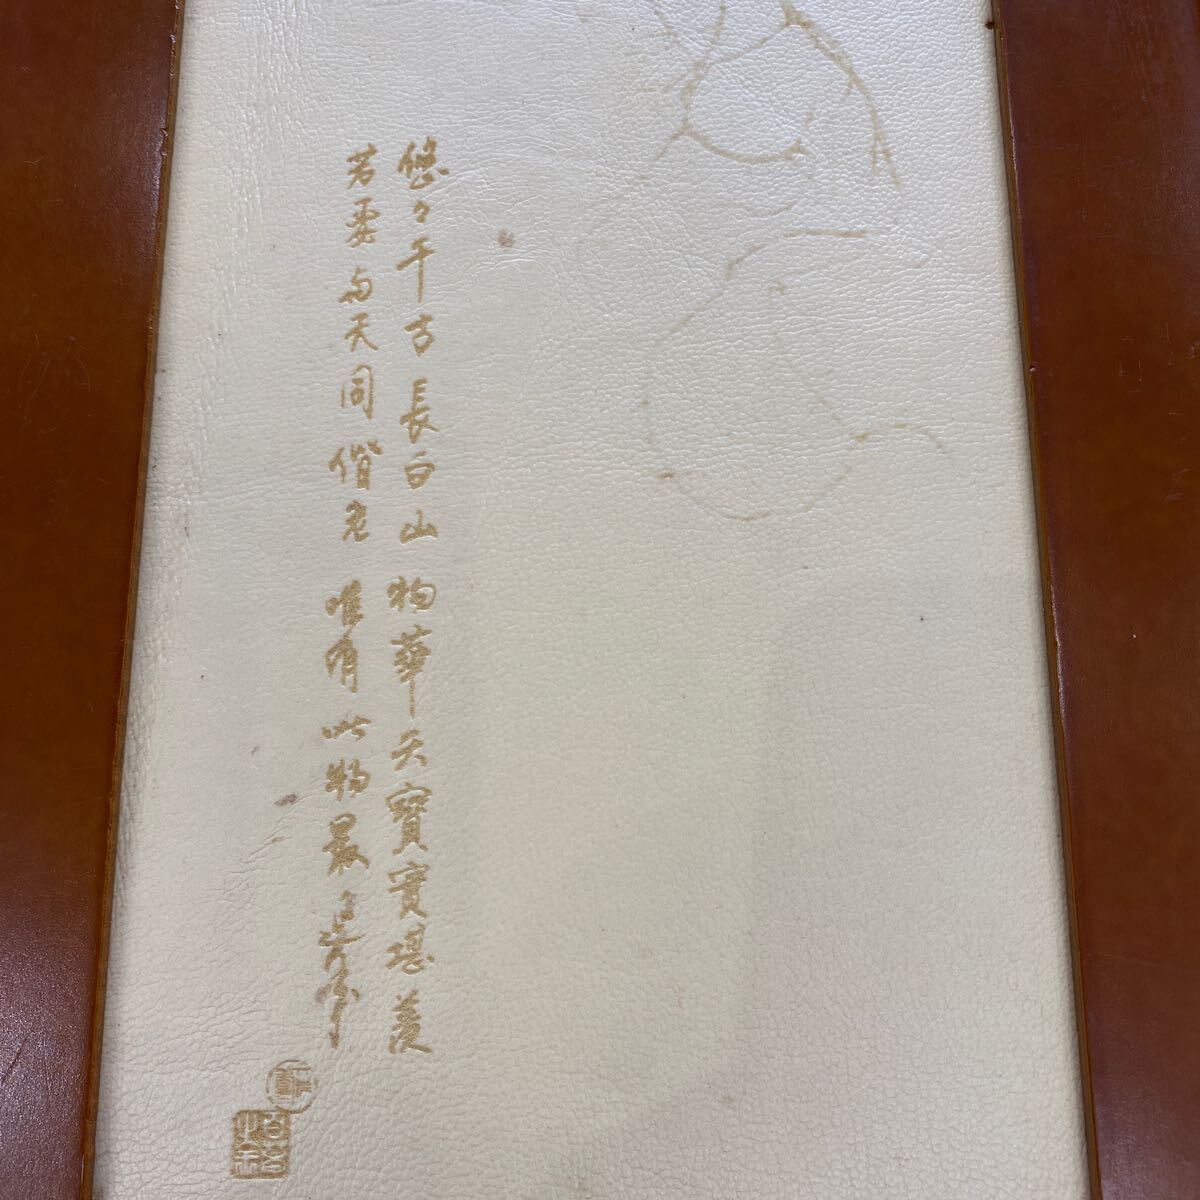 悠々千古長白山物華天寶實堪羨
若要与天同偕老唯有此物最
百草之王